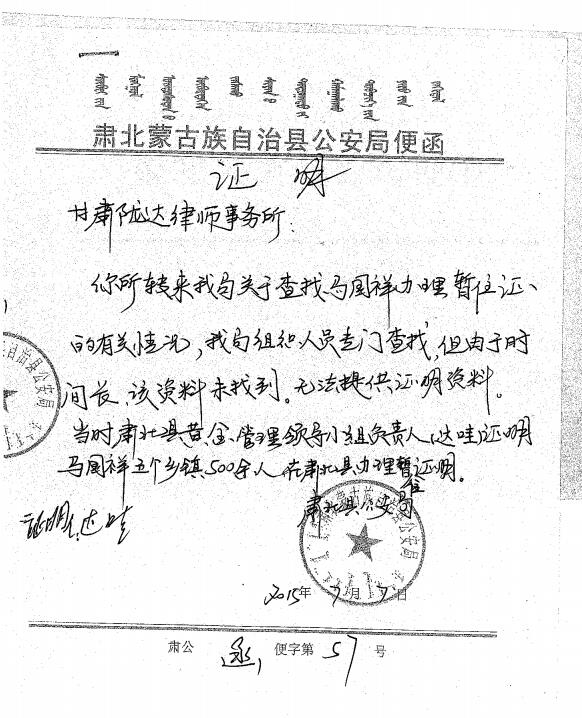 肃北蒙古族自治县公安局便函
证明
甘肃陇达律师事务所:
你所转来我局关于查找马国祥办理暂住证、
的有关情况,我局组织人员专门查找,但由于时
间长,该资料未找到。无法提供证明资料。
当时肃北县黄金管理领导小组负责人(达哇)证明
马国祥五个乡镇500余人在肃北县办理暂住证明。
肃北县公安局
证明:达哇
2015年7月7日
肃公 便字第57号